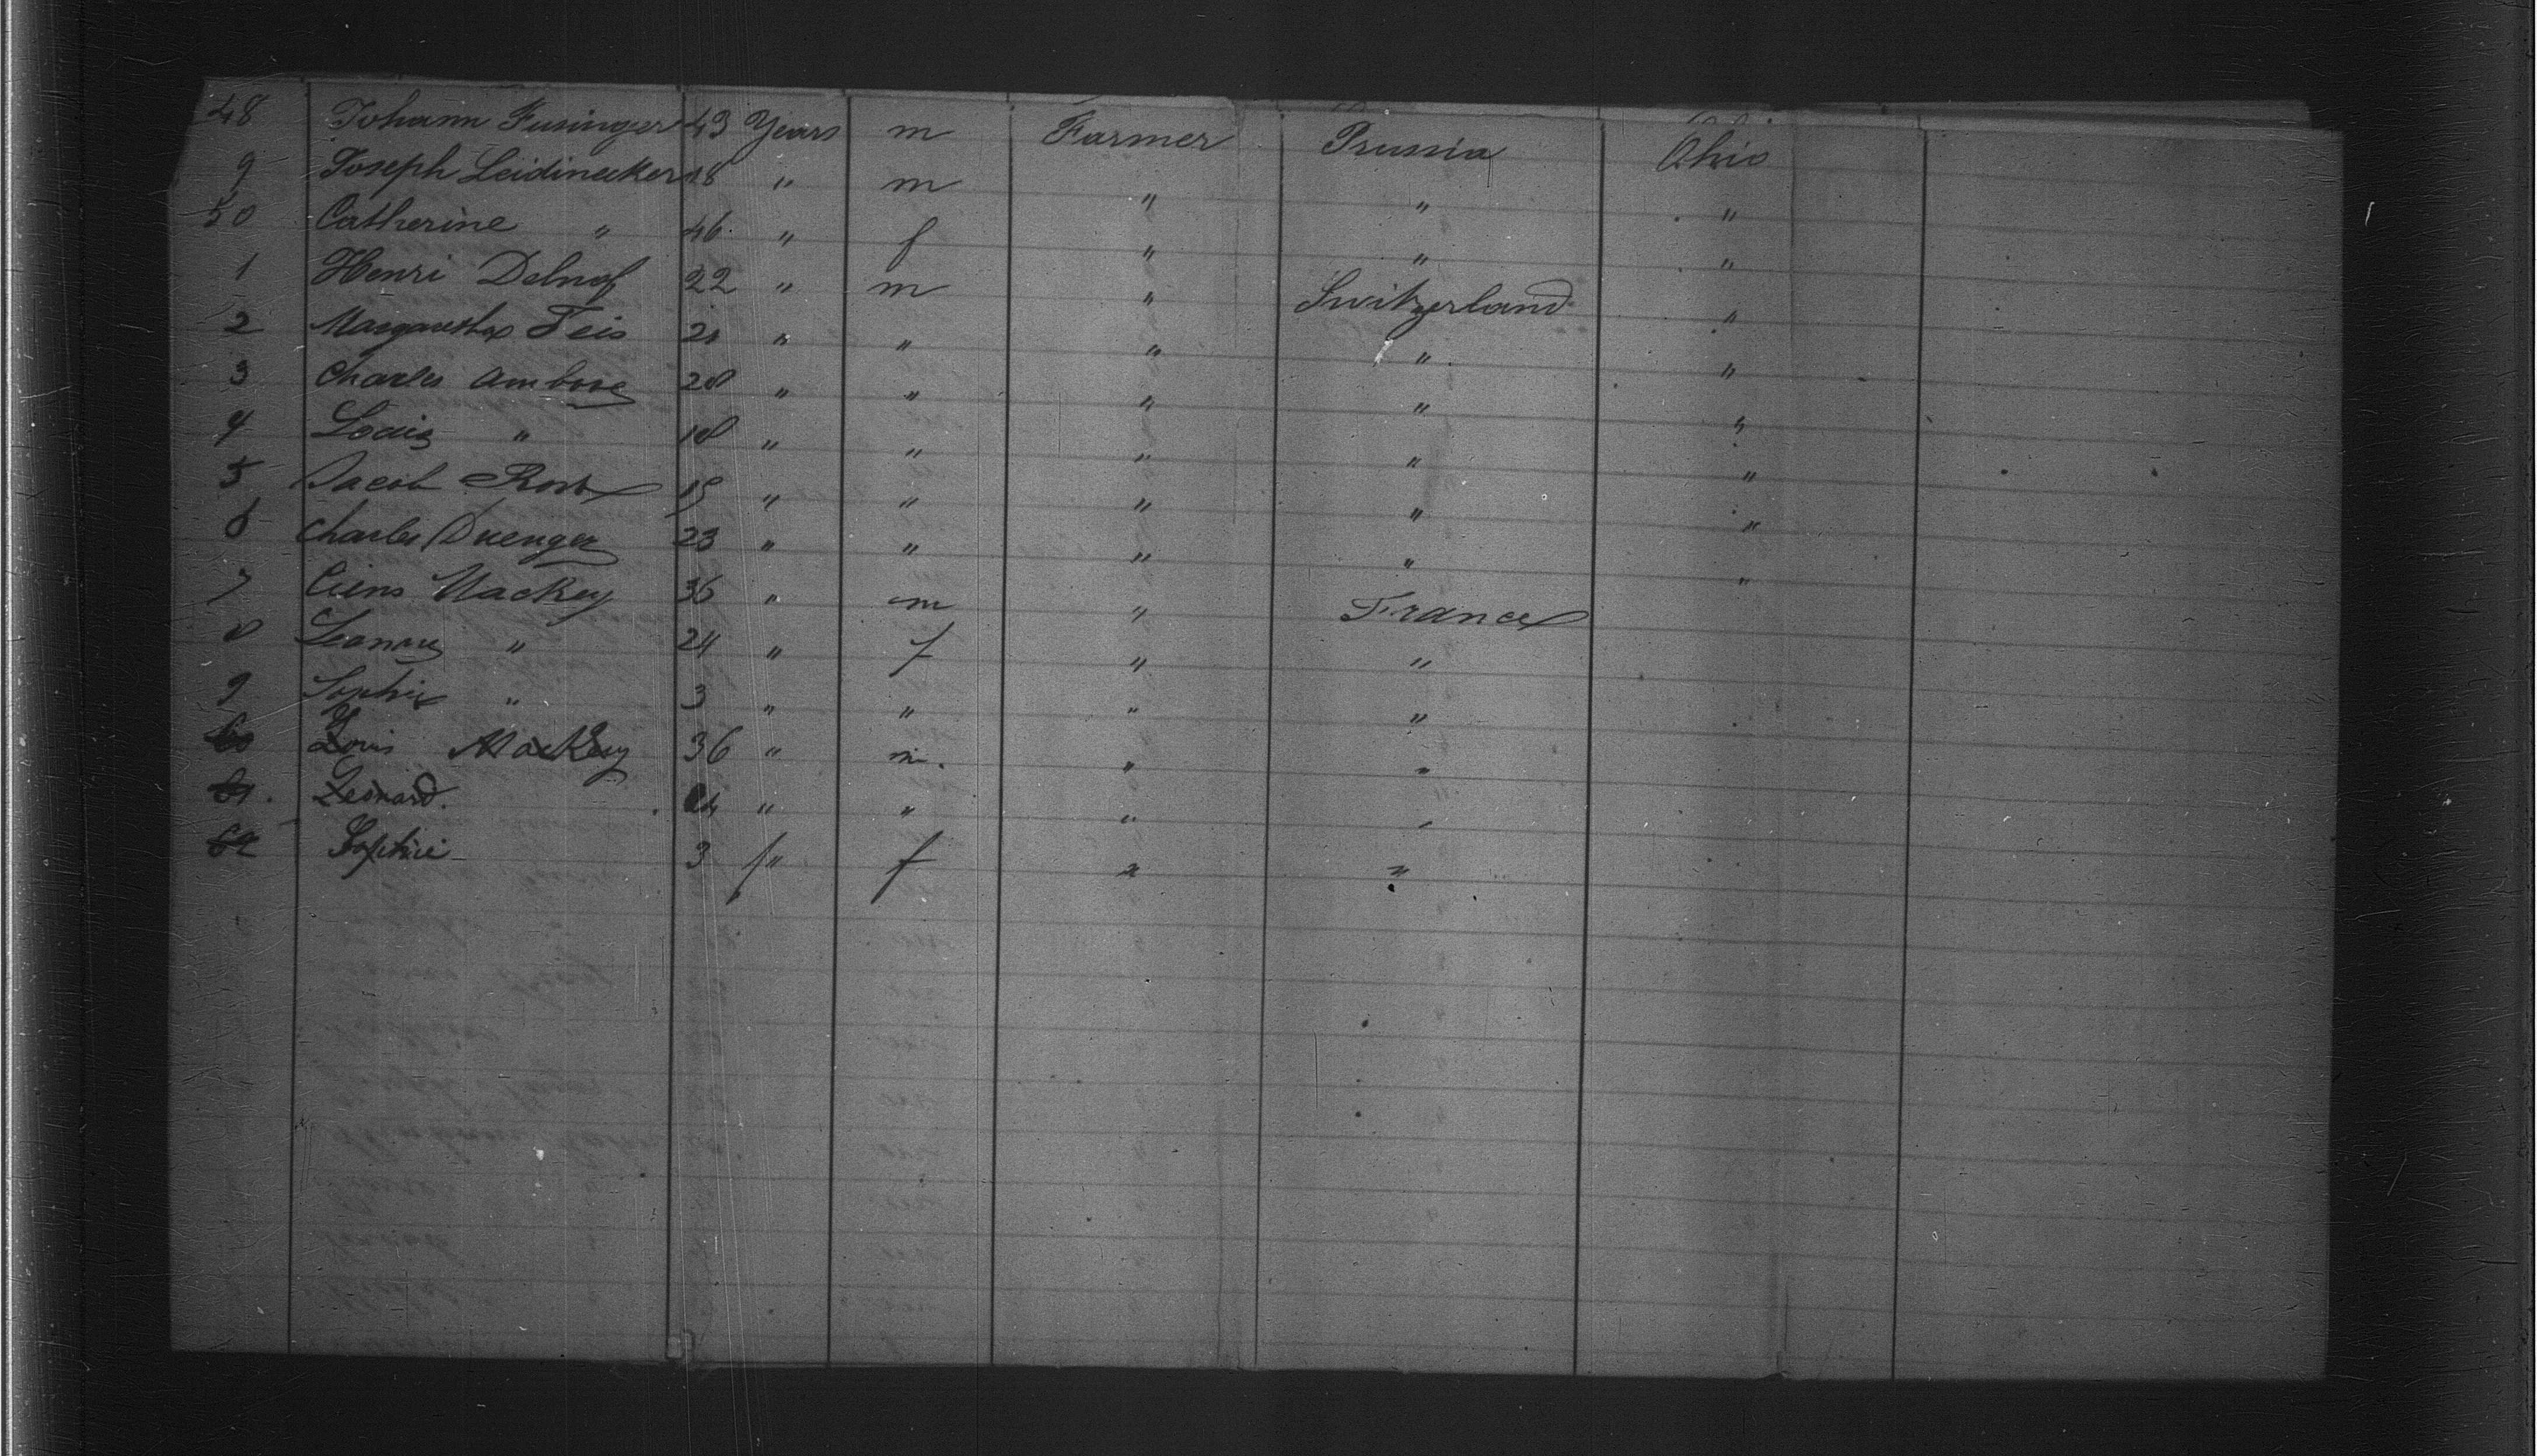 48 Johann Fusinger 43 Years m Farmer Prussia Ohio
9 Joseph Leidinecker 18 " m " " "
50 Catherine " 46 " f " " "
1 Henri Delnof 22 " m " Switzerland "
2 Margaretha Feis 21 " " " " "
3 Charles Ambose 28 " " " " "
4 Louis " 18 " " " " "
5 Jacob 19 " " " " "
6 Charles Duenger 23 " " " " "
7 Mackey 36 " m " France
8 " 24 " f " "
9 Sophie " 3 " " " "
60 Louis Mackey 36 " m. " "
61. Leonard. 24 " " " "
62 Sophie 3 " f " "